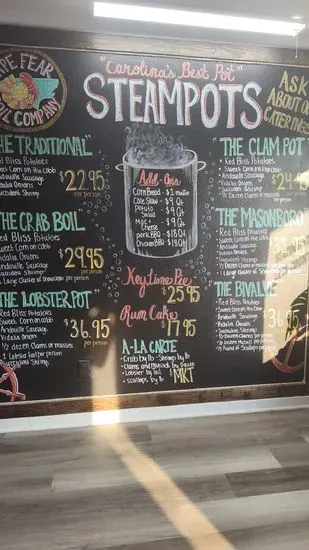 PE FEAR
OIL COMPANY
"Carolina's Best Pot"
STEAMPOTS
ASK
ABOUT O
CATERING
HE TRADITIONAL"
Red Bliss Potatoes
Sweet Corn on the Cobb
Andouille Sausage
Vidalia Onions
Succulent Shrimp
$22.95
per person
THE CRAB BOIL"
Red Bliss Potatoes
Sweet Corn on Cobb
Andouille Sausage
Vidalia Onions
Succulent Shrimp
1 Large Cluster of Snowcrab per person
$29.95
per person
THE LOBSTER POT"
Red Bliss Potatoes
Sweet Corn on Cobb
Andouille Sausage
Vidalia Onions
½ dozen Clams or mussels
1 Lobster tail per person
Succulent Shrimp
$36.95
per person
Add-Ons
Corn Bread · $1 muffin
Cole Slaw · $9 Qt
Potato Salad · $9 Qt
Mac + Cheese · $9 Qt
pork BBQ · $18 Qt
Chicken BBQ · $18 Qt
Key Lime Pie
$25.95
Rum Cake
$17.95
A-LA CARTE
• Crab by lb • Shrimp by lb
• Clams and Mussels by Dozen
• Lobster by tail
• Scallops by lb
$MKT
"THE CLAM POT"
• Red Bliss Potatoes
Sweet Corn on the Cobb
Andouille Sausage
Vidalia Onions
Succulent Shrimp
½ Dozen Clams or mussels
$24.9
per person
"THE MASONBORO
• Red Bliss Potatoes
Sweet Corn on Cobb
Andouille Sausage
Vidalia Onions
Succulent Shrimp
½ Dozen Clams or mussels
1 Large Cluster of Snowcrab per person
"THE BIVALVE"
• Red Bliss Potatoes
Sweet Corn on Cobb
Andouille Sausage
Vidalia Onions
Succulent Shrimp
½ Dozen Clams
½ Dozen Mussels
½ Pound of Scallops
$36
per person